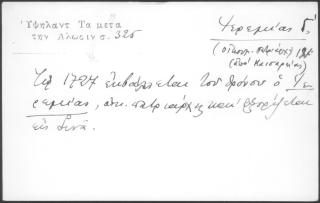 Ὑψηλαντ Τα μετα
την Αλωσιν σ. 325
Ἱερεμίας Γ΄
(οἰκουμ. πατριάρχ)
(ἀπὸ Καισαρείας)
Τῷ 1727 ἐκβάλλεται τοῦ θρόνου ὁ Ἱε-
ρεμίας, οἰκ. πατριάρχης καὶ ἐξορίζεται
εἰς Σινᾶ.